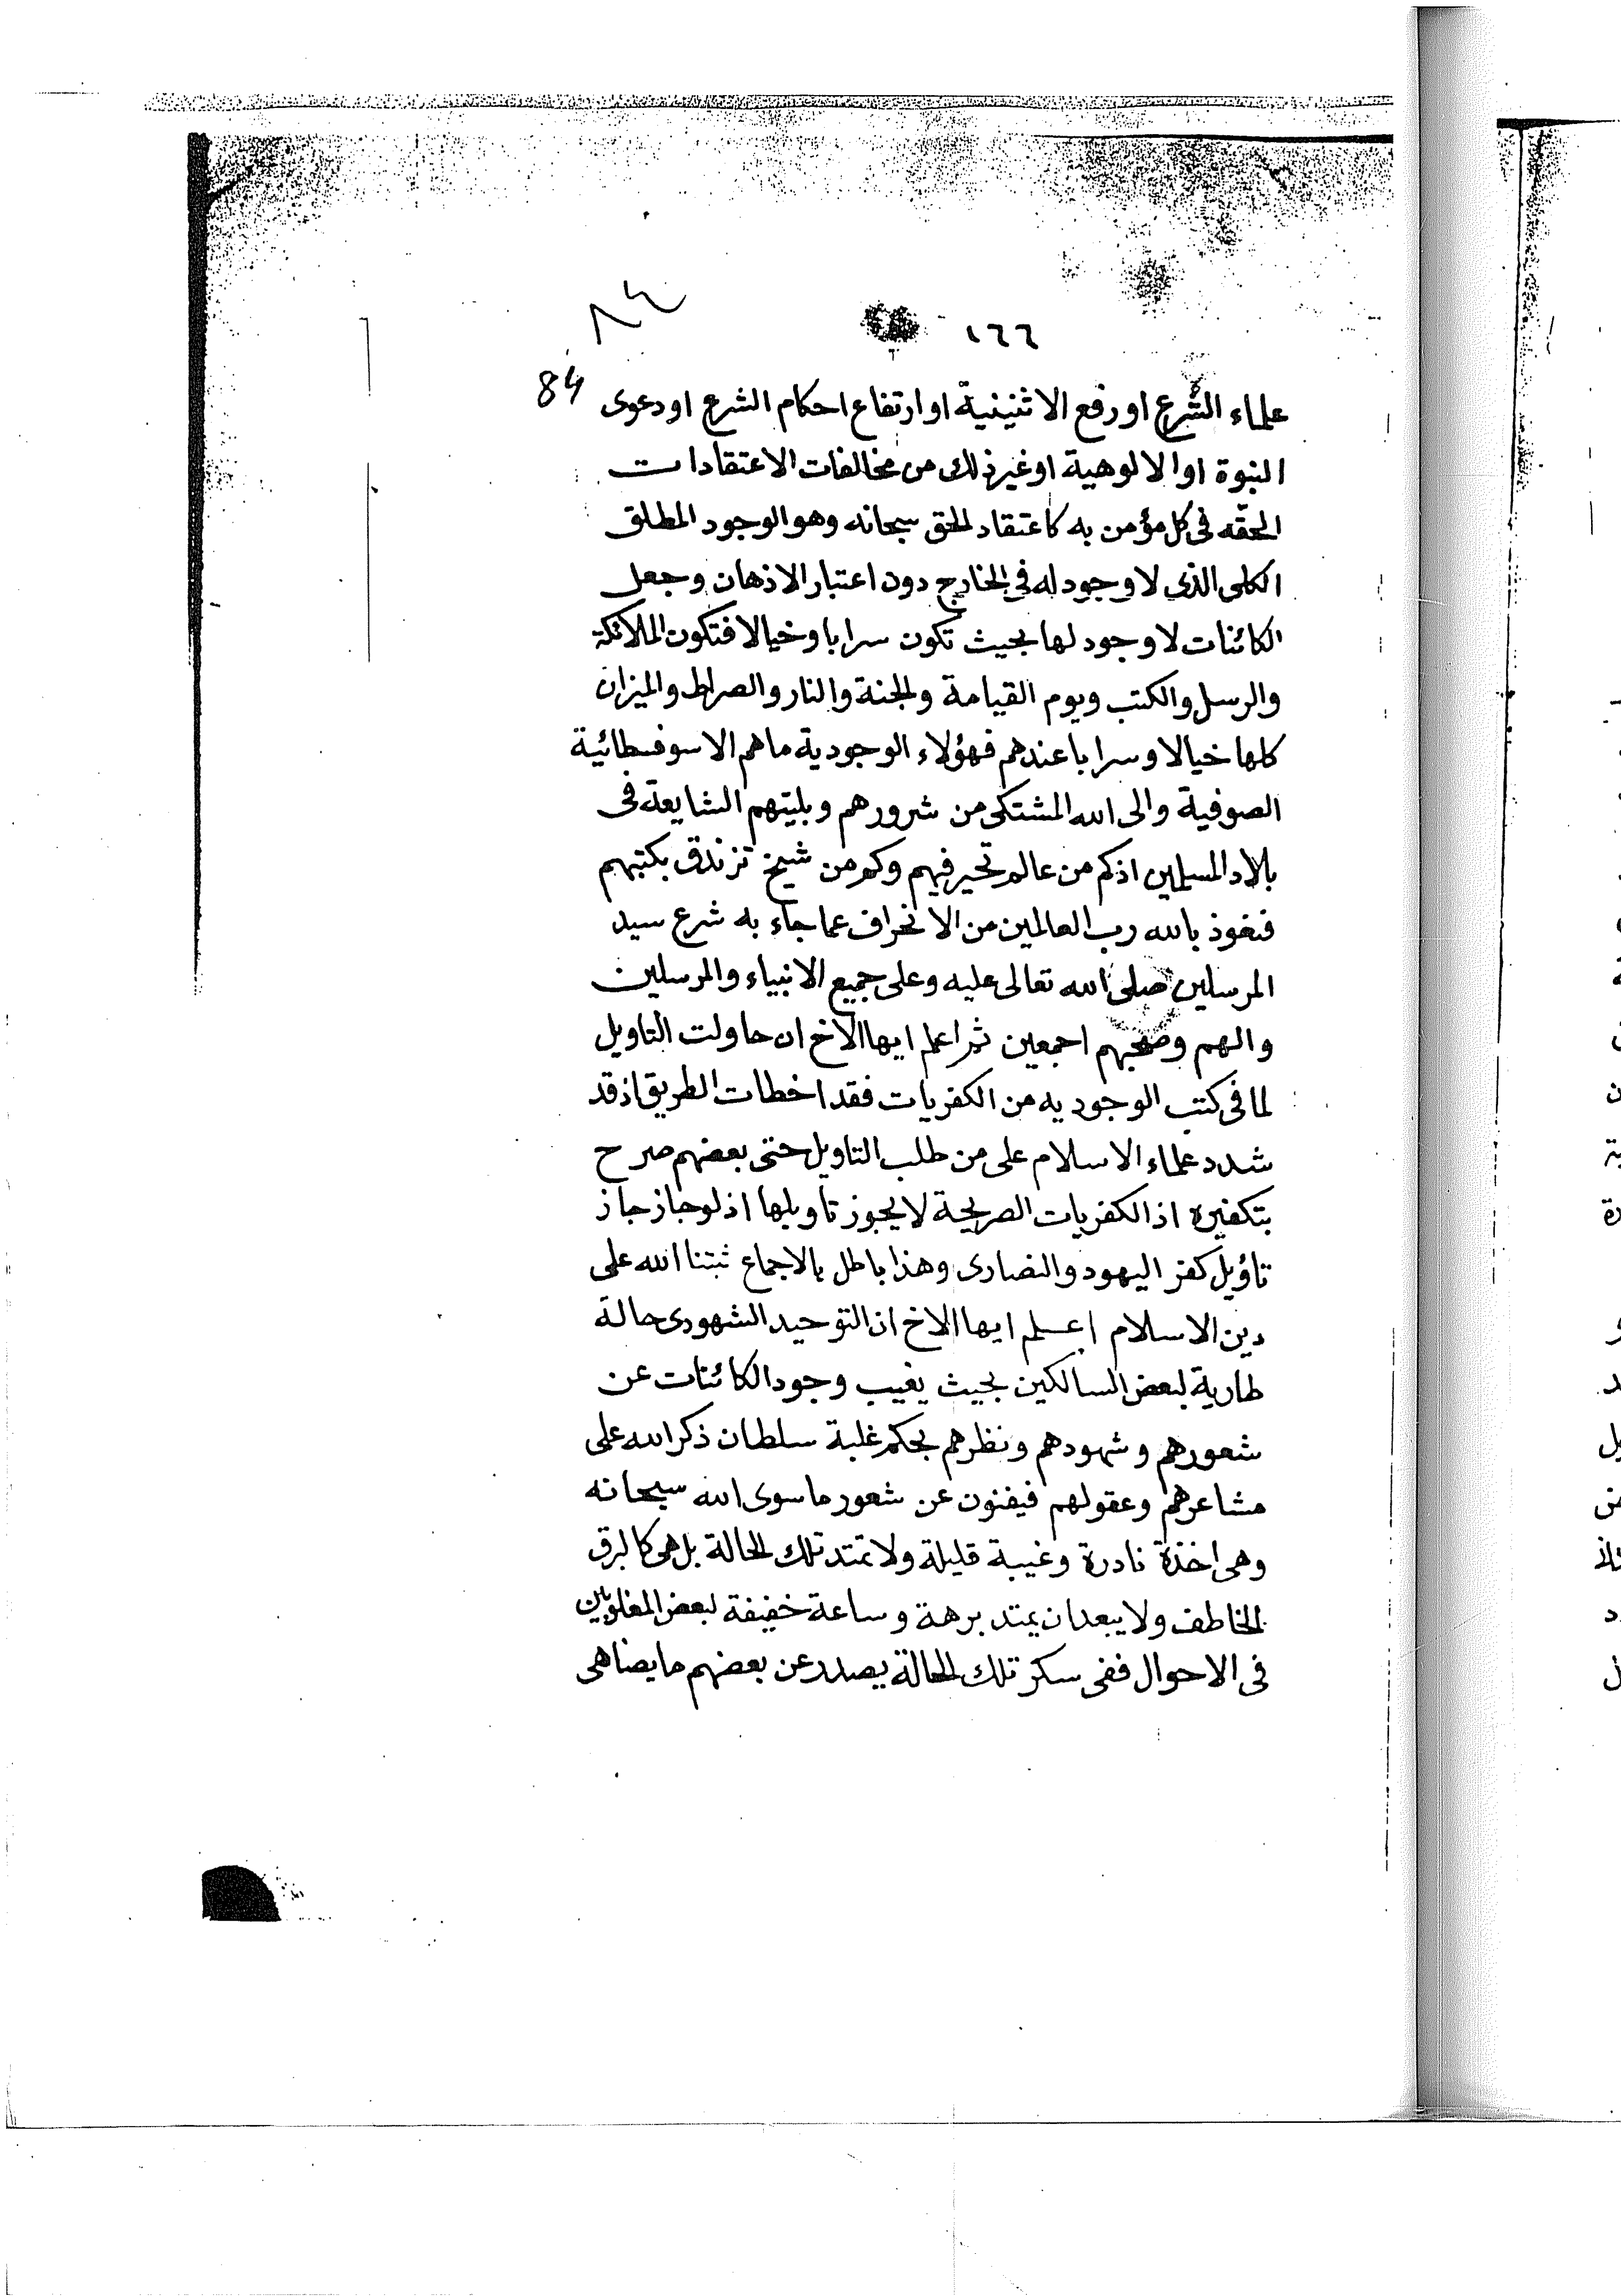 ٨٤
١٦٦
84
علماء الشرع او رفع الاثنينية او ارتفاع احكام الشرع او دعوى
النبوة او الالوهية او غير ذلك من مخالفات الاعتقادات
الحقه فى كل مؤمن به كاعتقاد الحق سبحانه وهو الوجود المطلق
الكلى الذى لا وجود له فى الخارج دون اعتبار الاذهان وجعل
الكائنات لا وجود لها بحيث تكون سرابا وخيالا فتكون الملائكة
والرسل والكتب ويوم القيامة والجنة والنار والصراط والميزان
كلها خيالا وسرابا عندهم فهؤلاء الوجودية ماهم الا سوفسطائية
الصوفية والى الله المشتكى من شرورهم وبليتهم الشايعة فى
بلاد المسلمين اذكم من عالم تحير فيهم وكم من شيخ تزندق بكتبهم
فنعوذ بالله رب العالمين من الانحراف عما جاء به شرع سيد
المرسلين صلى الله تعالى عليه وعلى جميع الانبياء والمرسلين
والهم وصحبهم اجمعين ثم اعلم ايها الاخ ان حاولت التاويل
لما فى كتب الوجوديه من الكفريات فقد اخطات الطريق اذ قد
شدد علماء الاسلام على من طلب التاويل حتى بعضهم صرح
بتكفيره اذ الكفريات الصريحة لا يجوز تاويلها اذ لو جاز جاز
تاؤيل كفر اليهود والنصارى وهذا باطل بالاجماع ثبتنا الله على
دين الاسلام اعلم ايها الاخ ان التوحيد الشهودى حالة
طارية لبعض السالكين بحيث يغيب وجود الكائنات عن
شعورهم وشهودهم ونظرهم بحكم غلبة سلطان ذكر الله على
مشاعرهم وعقولهم فيفنون عن شعور ما سوى الله سبحانه
وهى اخذة نادرة وغيبة قليلة ولا تمتد تلك الحالة بل هى كالبرق
الخاطف ولا يبعد ان يمتد برهة وساعة خفيفة لبعض المغلوبين
فى الاحوال ففى سكر تلك الحالة يصدر عن بعضهم ما يضاهى